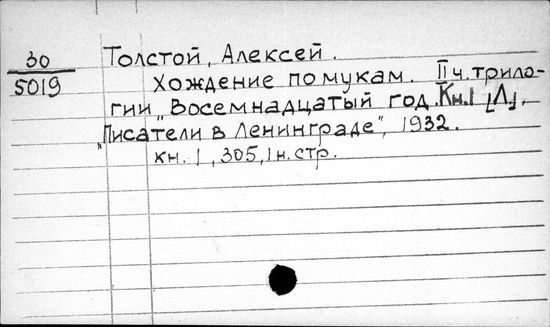 30
5019
Толстой, Алексей.
Хождение по мукам. II ч. трило-
гии „Восемнадцатый год. Кн. 1 [Л],
„Писатели в Ленинграде", 1932.
кн. 1, 305, 1 н. стр.